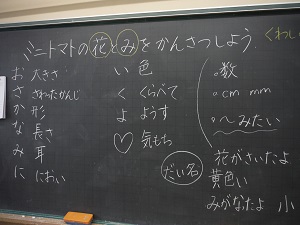 ミニトマトの花とみをかんさつしよう。
くわし
お 大きさ
さ さわったかんじ
か 形
な 長さ
み 耳
に におい
い 色
く くらべて
よ ようす
♡ 気もち
。数
。cm mm
。〜みたい
だい名
花がさいたよ
黄色い
みがなたよ 小